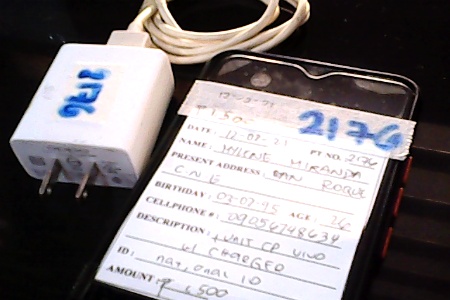 2176
12-07-21
₱ 1,500
2176
DATE: 12-07-21 PT NO. 2176
NAME: MYLENE MIRANDA
PRESENT ADDRESS: SAN ROQUE
C N E
BIRTHDAY: 03-07-95 AGE: 26
CELLPHONE #: 09056748634
DESCRIPTION: 1 UNIT CP VIVO
W/ CHARGED
ID: national ID
AMOUNT: ₱ 1,500